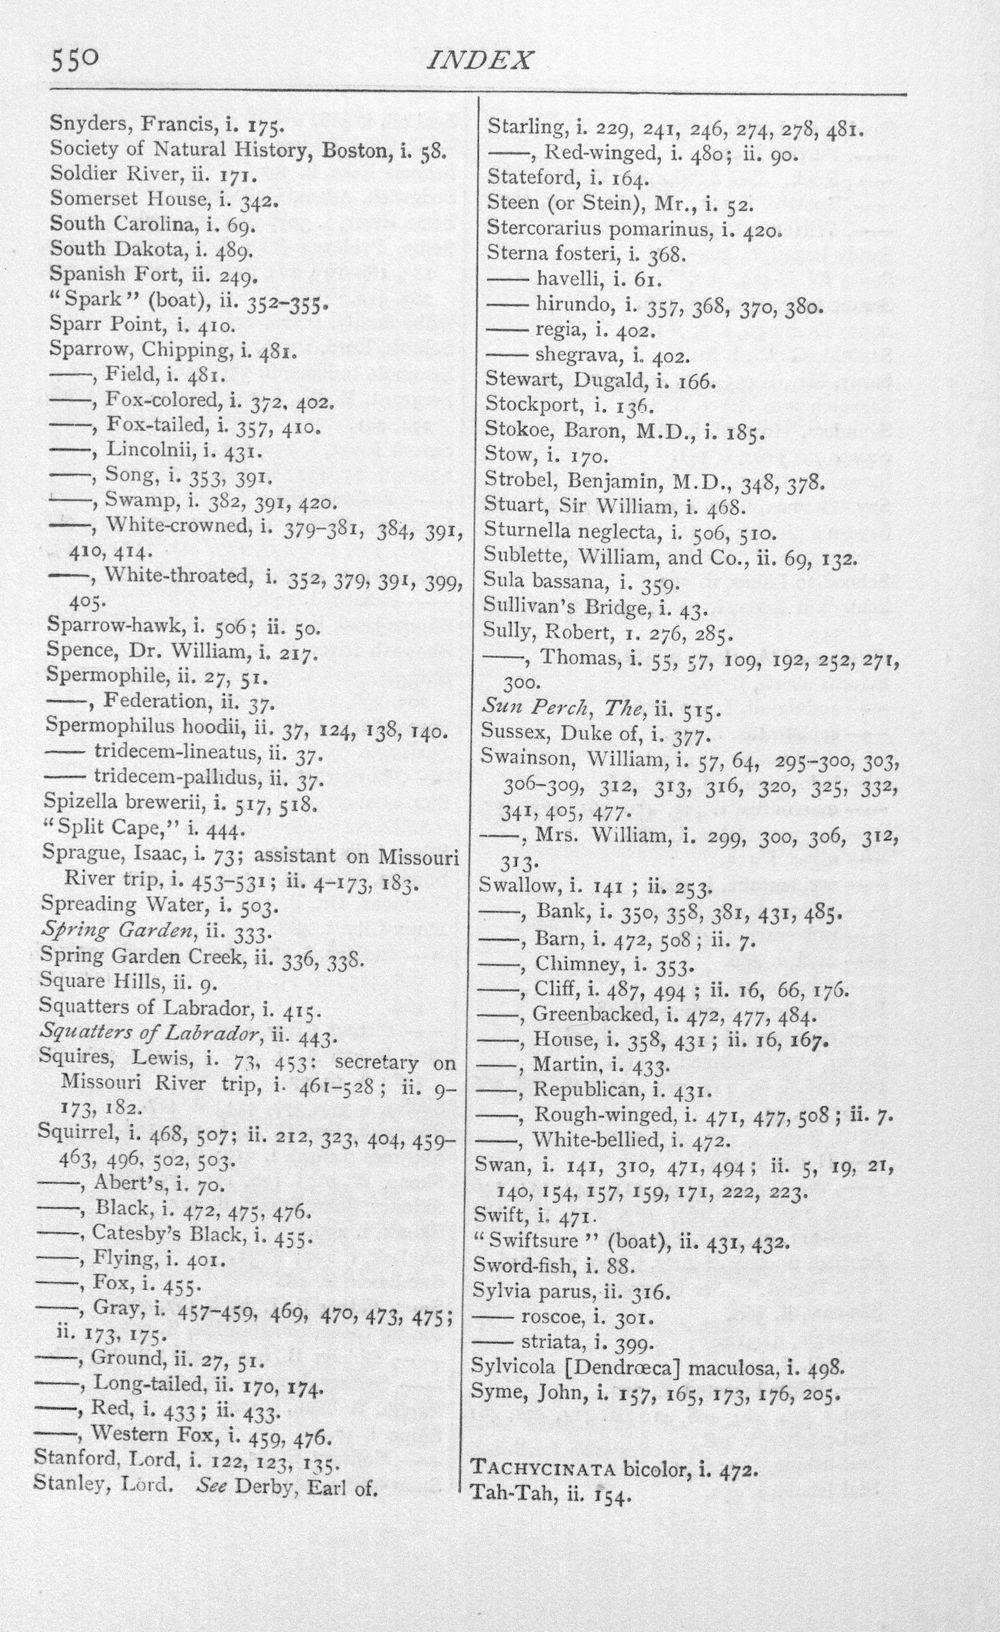 550
INDEX
Snyders, Francis, i. 175.
Society of Natural History, Boston, i. 58.
Soldier River, ii. 171.
Somerset House, i. 342.
South Carolina, i. 69.
South Dakota, i. 489.
Spanish Fort, ii. 249.
“Spark” (boat), ii. 352–355.
Sparr Point, i. 410.
Sparrow, Chipping, i. 481.
——, Field, i. 481.
——, Fox-colored, i. 372, 402.
——, Fox-tailed, i. 357, 410.
——, Lincolnii, i. 431.
——, Song, i. 353, 391.
——, Swamp, i. 382, 391, 420.
——, White-crowned, i. 379–381, 384, 391,
410, 414.
——, White-throated, i. 352, 379, 391, 399,
405.
Sparrow-hawk, i. 506; ii. 50.
Spence, Dr. William, i. 217.
Spermophile, ii. 27, 51.
——, Federation, ii. 37.
Spermophilus hoodii, ii. 37, 124, 138, 140.
—— tridecem-lineatus, ii. 37.
—— tridecem-pallidus, ii. 37.
Spizella brewerii, i. 517, 518.
“Split Cape,” i. 444.
Sprague, Isaac, i. 73; assistant on Missouri
River trip, i. 453–531; ii. 4–173, 183.
Spreading Water, i. 503.
Spring Garden, ii. 333.
Spring Garden Creek, ii. 336, 338.
Square Hills, ii. 9.
Squatters of Labrador, i. 415.
Squatters of Labrador, ii. 443.
Squires, Lewis, i. 73, 453: secretary on
Missouri River trip, i. 461–528; ii. 9–
173, 182.
Squirrel, i. 468, 507; ii. 212, 323, 404, 459–
463, 496, 502, 503.
——, Abert’s, i. 70.
——, Black, i. 472, 475, 476.
——, Catesby’s Black, i. 455.
——, Flying, i. 401.
——, Fox, i. 455.
——, Gray, i. 457–459, 469, 470, 473, 475;
ii. 173, 175.
——, Ground, ii. 27, 51.
——, Long-tailed, ii. 170, 174.
——, Red, i. 433; ii. 433.
——, Western Fox, i. 459, 476.
Stanford, Lord, i. 122, 123, 135.
Stanley, Lord. See Derby, Earl of.
Starling, i. 229, 241, 246, 274, 278, 481.
——, Red-winged, i. 480; ii. 90.
Stateford, i. 164.
Steen (or Stein), Mr., i. 52.
Stercorarius pomarinus, i. 420.
Sterna fosteri, i. 368.
—— havelli, i. 61.
—— hirundo, i. 357, 368, 370, 380.
—— regia, i. 402.
—— shegrava, i. 402.
Stewart, Dugald, i. 166.
Stockport, i. 136.
Stokoe, Baron, M.D., i. 185.
Stow, i. 170.
Strobel, Benjamin, M.D., 348, 378.
Stuart, Sir William, i. 468.
Sturnella neglecta, i. 506, 510.
Sublette, William, and Co., ii. 69, 132.
Sula bassana, i. 359.
Sullivan’s Bridge, i. 43.
Sully, Robert, 1. 276, 285.
——, Thomas, i. 55, 57, 109, 192, 252, 271,
300.
Sun Perch, The, ii. 515.
Sussex, Duke of, i. 377.
Swainson, William, i. 57, 64, 295–300, 303,
306–309, 312, 313, 316, 320, 325, 332,
341, 405, 477.
——, Mrs. William, i. 299, 300, 306, 312,
313.
Swallow, i. 141 ; ii. 253.
——, Bank, i. 350, 358, 381, 431, 485.
——, Barn, i. 472, 508; ii. 7.
——, Chimney, i. 353.
——, Cliff, i. 487, 494 ; ii. 16, 66, 176.
——, Greenbacked, i. 472, 477, 484.
——, House, i. 358, 431 ; ii. 16, 167.
——, Martin, i. 433.
——, Republican, i. 431.
——, Rough-winged, i. 471, 477, 508 ; ii. 7.
——, White-bellied, i. 472.
Swan, i. 141, 310, 471, 494; ii. 5, 19, 21,
140, 154, 157, 159, 171, 222, 223.
Swift, i. 471.
“Swiftsure” (boat), ii. 431, 432.
Sword-fish, i. 88.
Sylvia parus, ii. 316.
—— roscoe, i. 301.
—— striata, i. 399.
Sylvicola [Dendrœca] maculosa, i. 498.
Syme, John, i. 157, 165, 173, 176, 205.
TACHYCINATA bicolor, i. 472.
Tah-Tah, ii. 154.